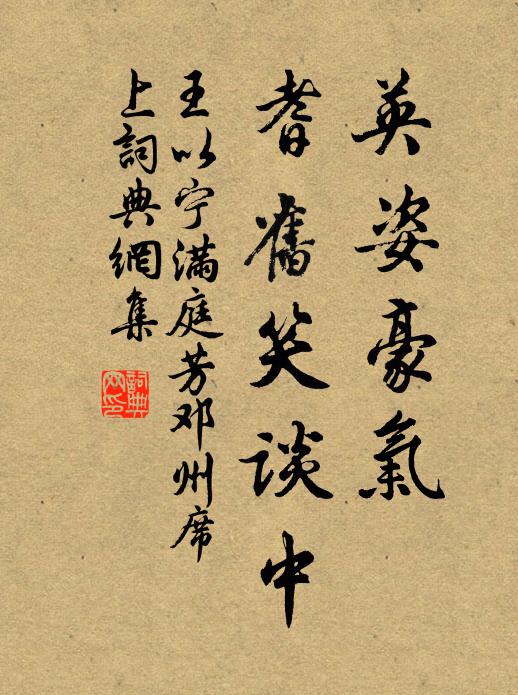 英姿豪氣
耆舊笑談中
王以宁滿庭芳邓州席
上詞典網集
詞典
网印